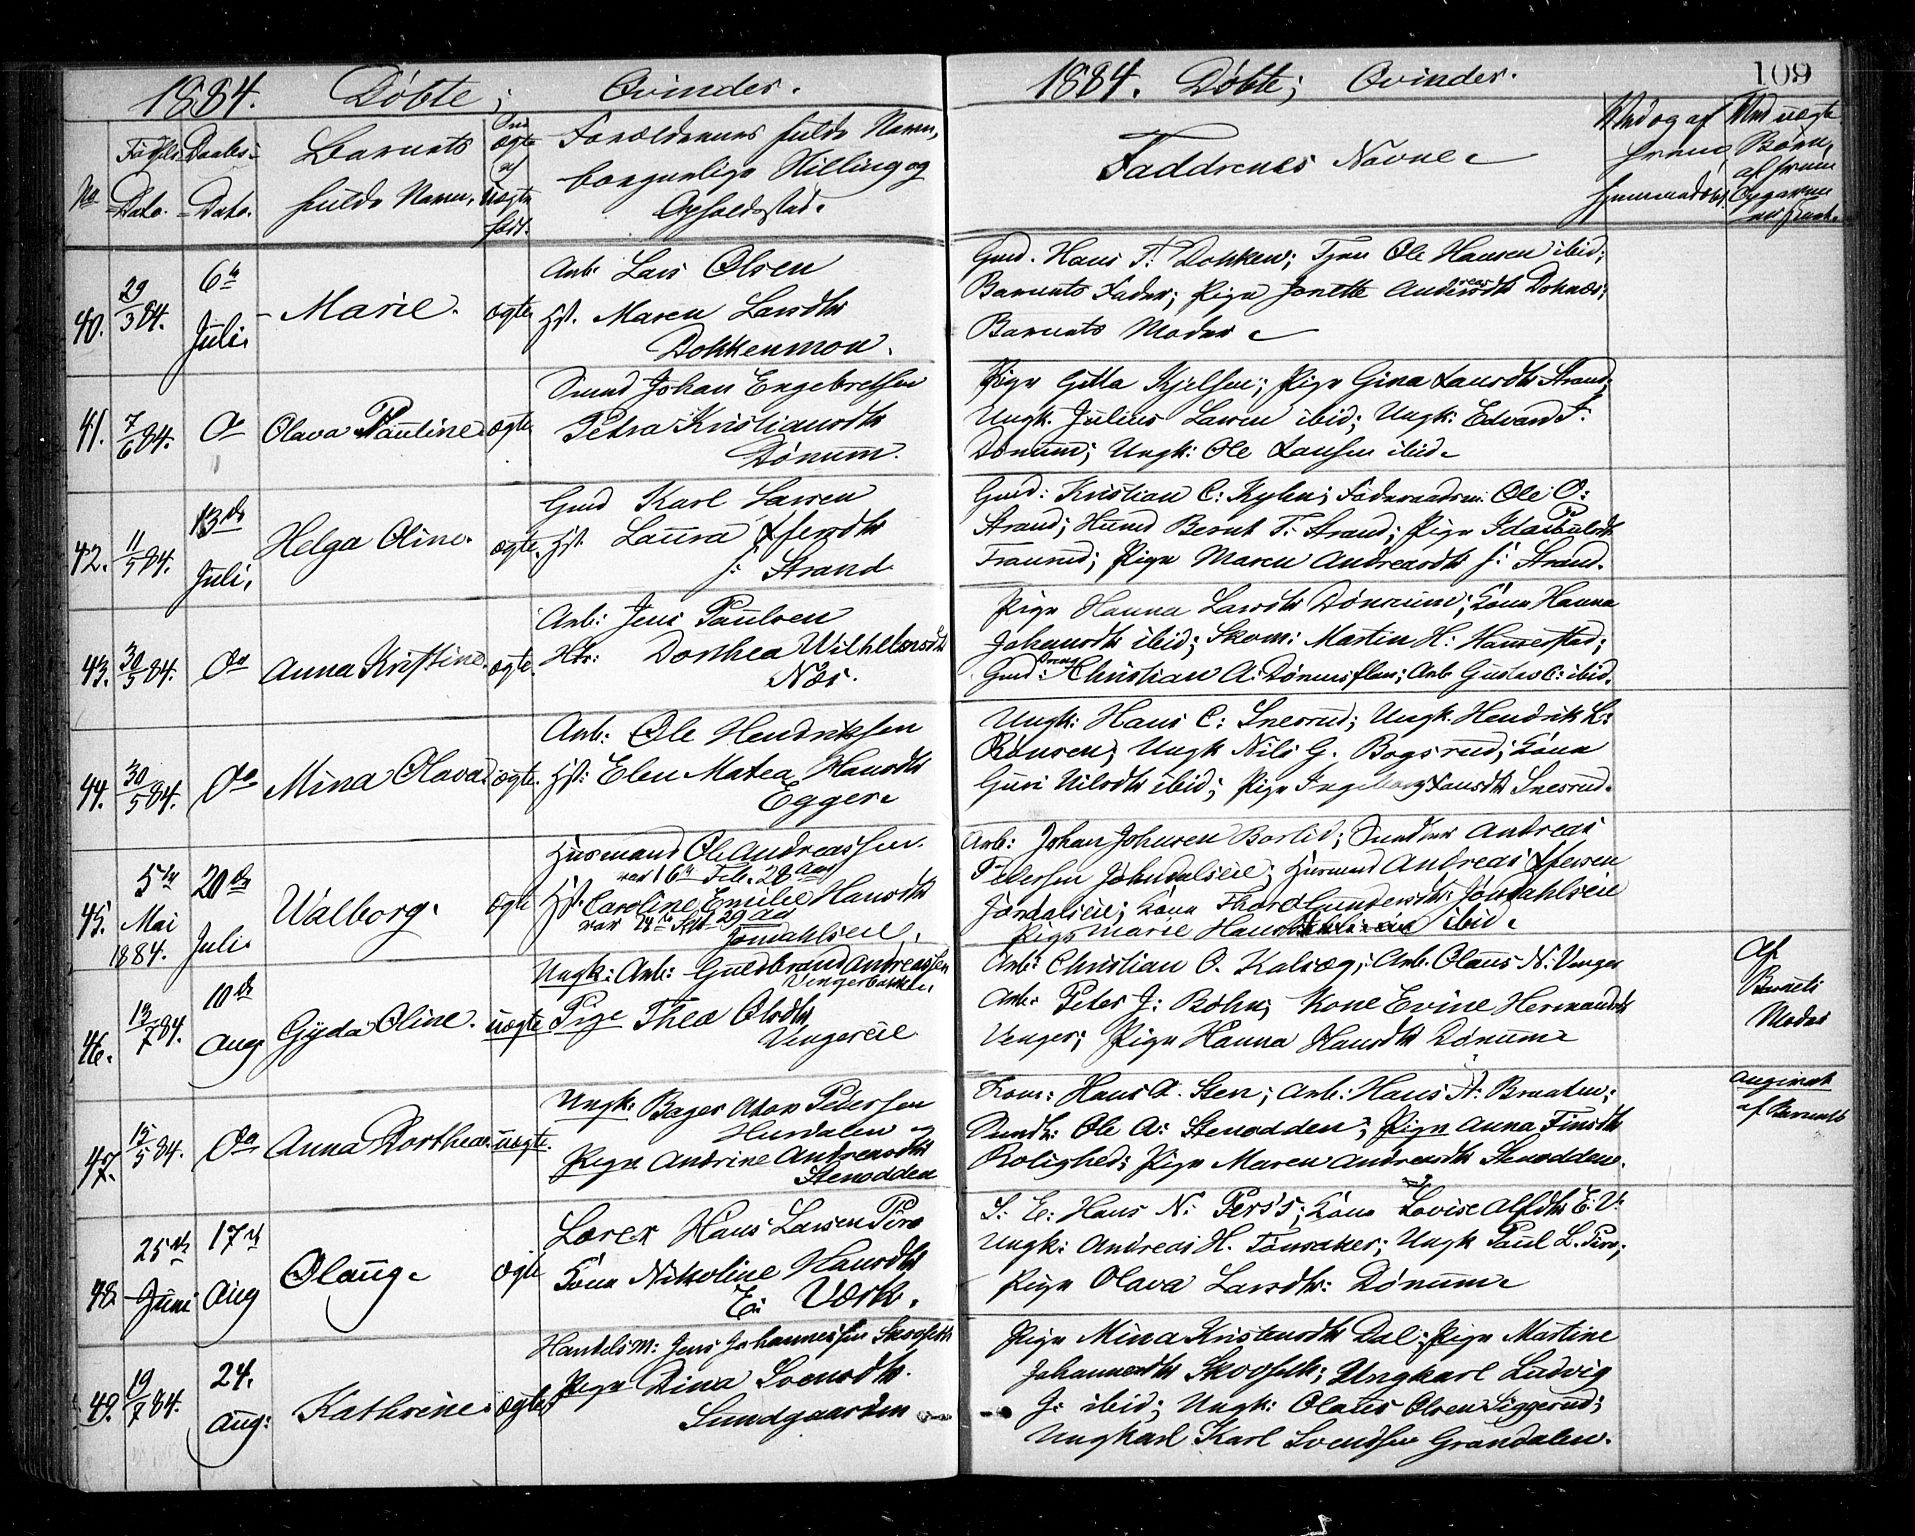 1884. Døbte; Qvinder.
No
Fødsels-
Dato.
Daabs-
Dato.
Barnets
fulde Navn.
Om
ægte
el
uægte
født.
Forældrenes fulde Navn,
borgerlige Stilling og
Opholdssted.
40.
29/3 84.
6te
Juli.
Marie.
ægte
Arb. Lars Olsen
Hst. Maren Larsdtr
Dokkenmoen.
41.
7/6 84.
Do
Olava Pauline.
ægte.
Smed Johan Engebretsen
Petra Kristiansdtr
Dønum.
42.
11/5 84.
13de
Juli.
Helga Oline.
ægte.
Gmd Karl Larsen
Hst. Laura Ifersdtr
f: Strand
43.
30/5 84.
Do
Anna Kristine.
ægte.
Arb: Jens Paulsen
Hst: Dorthea Wilhelmsdtr
Næs.
44.
30/5 84.
Do
Mina Olava.
ægte.
Arb: Ole Hendriksen
Hst: Elen Matea Hansdtr
Egger.
45.
5te
Mai
1884.
20de
Juli.
Walborg.
ægte
Husmand Ole Andreassen.
var 16de Feb. 28 Aar
Hst. Caroline Emilie Hansdtr
var 14de Spt. 29 Aar
Jøndahlseie.
46.
13/7 84.
10de
Aug.
Gyda Oline.
uægte
Ungk: Arb: Guldbrand Andreassen
Vengerbakken.
Pige Thea Olsdtr
Vengereie
47.
15/5 84.
Do
Anna Dorthea.
uægte.
Ungk: Bager Aton Pedersen
Hurdalen og
Pige Andrine Andreasdtr
Stenodden
48.
25de
Juni
17de
Aug
Olaug.
ægte
Lorer Hans Larsen Pero
Kone Nikoline Hansdtr
E: Værk.
49.
19/7 84.
24.
Aug:
Kathrine.
ægte
Handelsm: Jens Johannessen Skovseth
Pige Dina Svensdtr.
Sundgaarden
1884. Døbte; Qvinder. 109
Faddrenes Navne.
Ved uægte
Børn,
Gmd. Hans T: Dokken; Tjen Ole Hansen ibid;
Barnets Fader; Pige Jonette Andersdtr Doknæs;
Barnets Moder.
Pige Gitta Kjelsen; Pige Gina Larsdtr Strand;
Ungk. Julius Larsen ibid; Ungk: Edvard J:
Dønum; Ungk: Ole Larsen ibid.
Gmd: Kristian C: Kylen; Føderaadsm: Ole O:
Strand; Husmd Bernt T: Strand; Pige Ida Paulsdtr
Pige Maren Andreasdtr f: Strand.
Pige Hanna Larsdtr Dønum; Kone Hanna
Johansdtr ibid; Skom: Martin H: Hammerstad;
Gmd: Christian A: Dønumsflan; Arb Gustav C: ibid.
Ungk: Hans C: Snesrud; Ungk. Hendrik L:
Rønsen; Ungk Nils G. Bogsrud; Kone
Guri Nilsdtr ibid; Pige Ingeborg Larsdtr Snesrud.
Arb: Johan Johnsen Borlid; Andreas
Pedersen Jøndalseie; Husmand Andreas Ifersen
Jøndalseie; Kone Thord Gundersdtr: Jøndahlseie
Pige Marie Hansdtr ibid.
Arb: Christian O. Kalsæg; Arb. Olaus N: Venger
Arb. Peter J: Bøhn; Kone Evine Hermansdtr
Venger; Pige Hanna Hansdtr Dønum.
Af
Barnets
Moder
Hans A. Sten; Arb: Hans A: Braaten;
Ole A: Stenodden; Pige Anna Finsdtr
Rolighed; Pige Maren Andreasdtr Stenodden.
Angivet
af Barnets
S: E: Hans N: Pers's; Kone Lovise Alfsdtr E: V:
Ungk: Andreas H. Tønsaker; Ungk Paul L. Pero;
Pige Olava Larsdtr: Dønum.
Pige Mina Kristensdtr Dal; Pige Martine
Johannesdtr Skovseth; Ungkarl Ludvig
J: ibid; Ungk: Olaus Olsen Siggerud;
Ungkarl Karl Svendsen Grandalen.